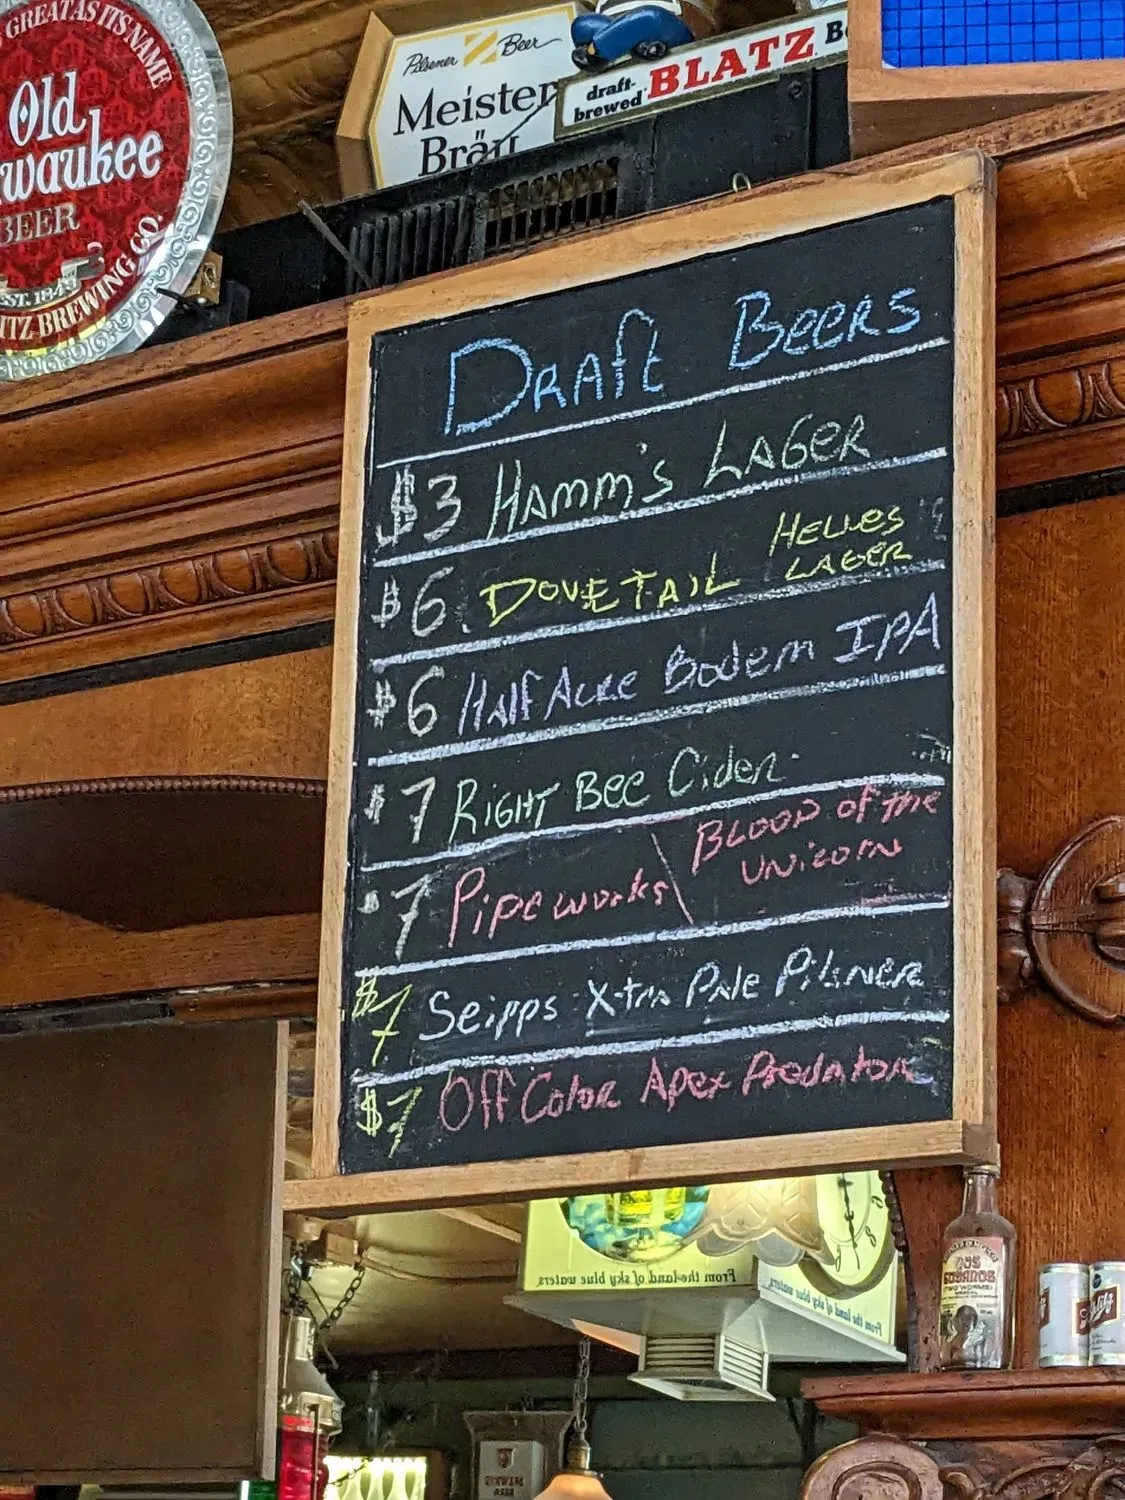 GREAT AS ITS NAME
Old
waukee
BEER
EST. 1849
ITZ BREWING CO.
Pilsener Beer
Meister
Bräu
draft-
brewed
BLATZ
DRAft BEERS
$3 HAMM'S LAGER
$6. DOVETAIL HELLES
LAGER
$6 HAlf ACRE Bodem IPA
$7 RIGHT BEE Cider
$7 Pipeworks \ BLOOD of the
UNicorn
$7 Seipps X-tra Pale PilsNER
$7 Off Color Apex Predator
From the land of sky blue waters.
From the land of sky blue waters
DOS
GUSANOS
(TWO WORMS)
Schlitz